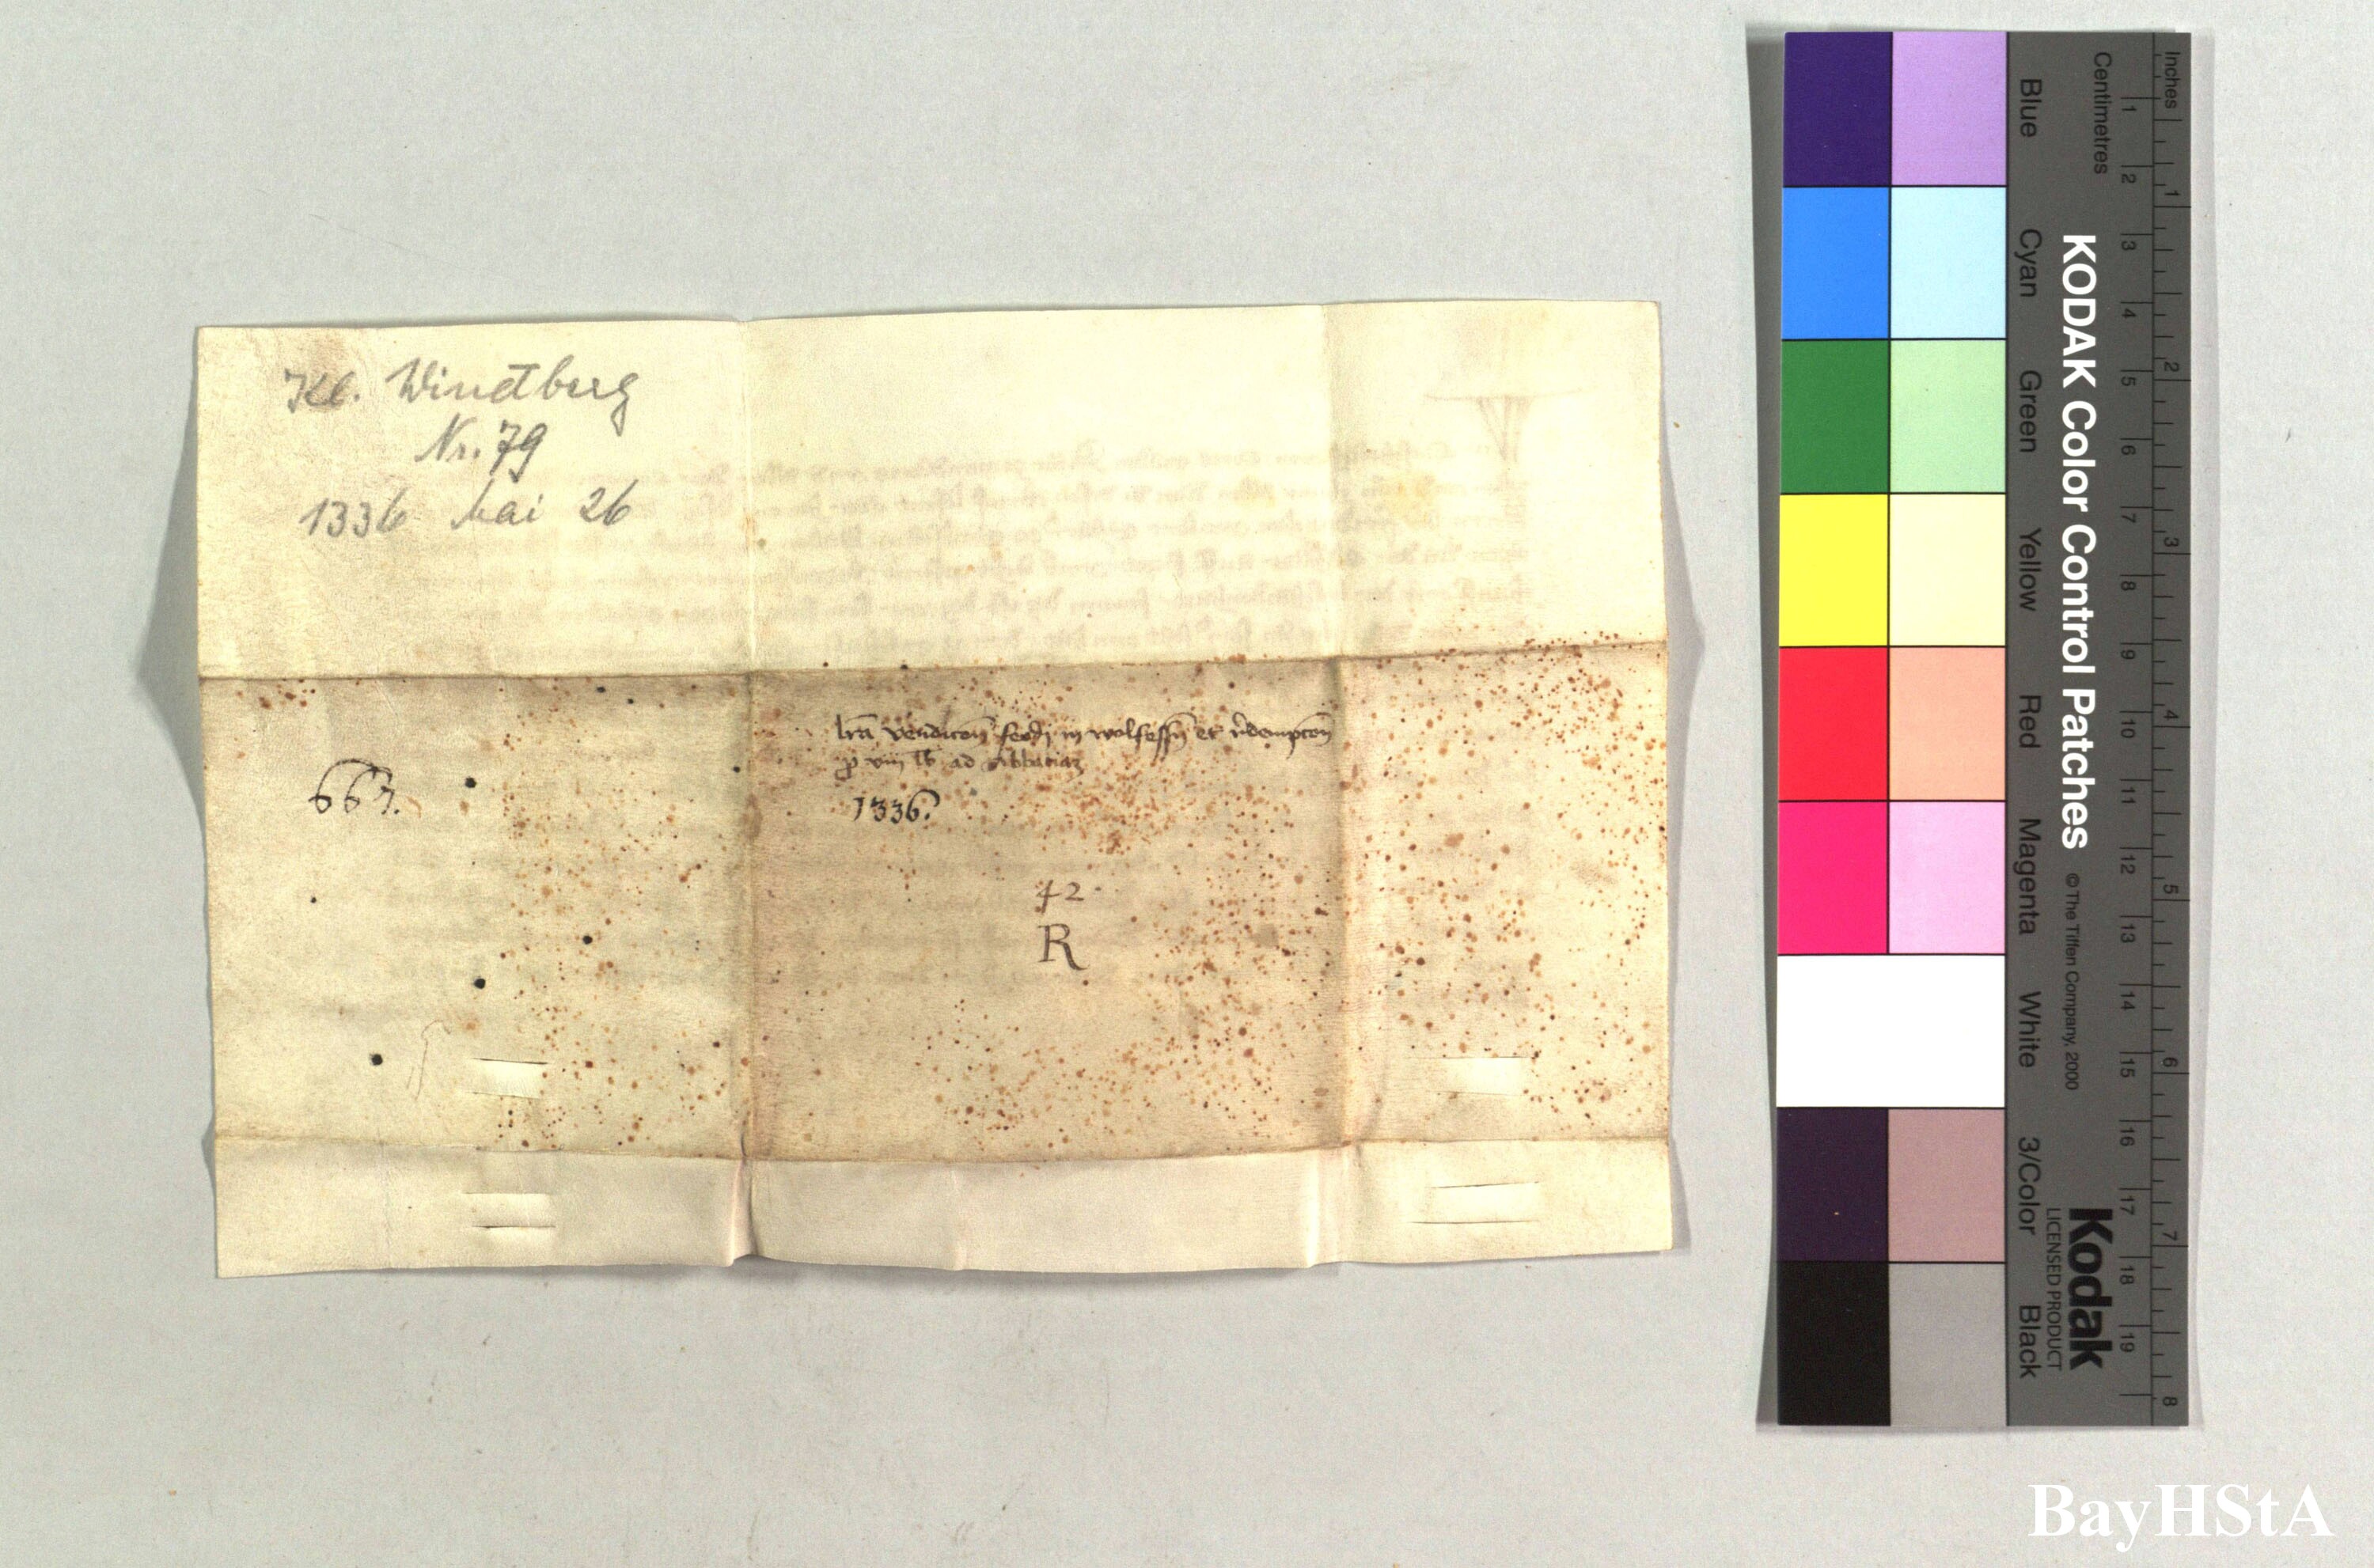 Kl. Windberg
Nr. 79
1336 Mai 26
lr̄a vendicōn feodj in wolfessñ et r̄dempcōn
ꝓ viij lb ad Abbaciaʒ
1336.
667.
42
R
Inches
Centimetres
KODAK Color Control Patches © The Tiffen Company, 2000
Kodak
LICENSED PRODUCT
Blue Cyan Green Yellow Red Magenta White 3/Color Black
1 2 3 4 5 6 7 8 9 10 11 12 13 14 15 16 17 18 19
1 2 3 4 5 6 7 8
BayHStA